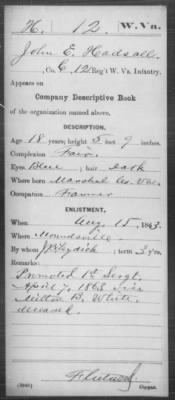 H. 12. W.Va.
John E. Hadsall
Co. C, 12 Reg't W. Va. Infantry.
Appears on
Company Descriptive Book
of the organization named above.
DESCRIPTION.
Age 18 years; height 5 feet 9 inches.
Complexion Fair.
Eyes Blue; hair Dark
Where born Marshal Co. Va.
Occupation Farmer
ENLISTMENT.
When Aug 15, 186
Where Moundsville
By whom term 3 y'rs.
Remarks:
Promoted 1st Sergt.
April 7, 1863 vice
Milton B. White
Copyist.